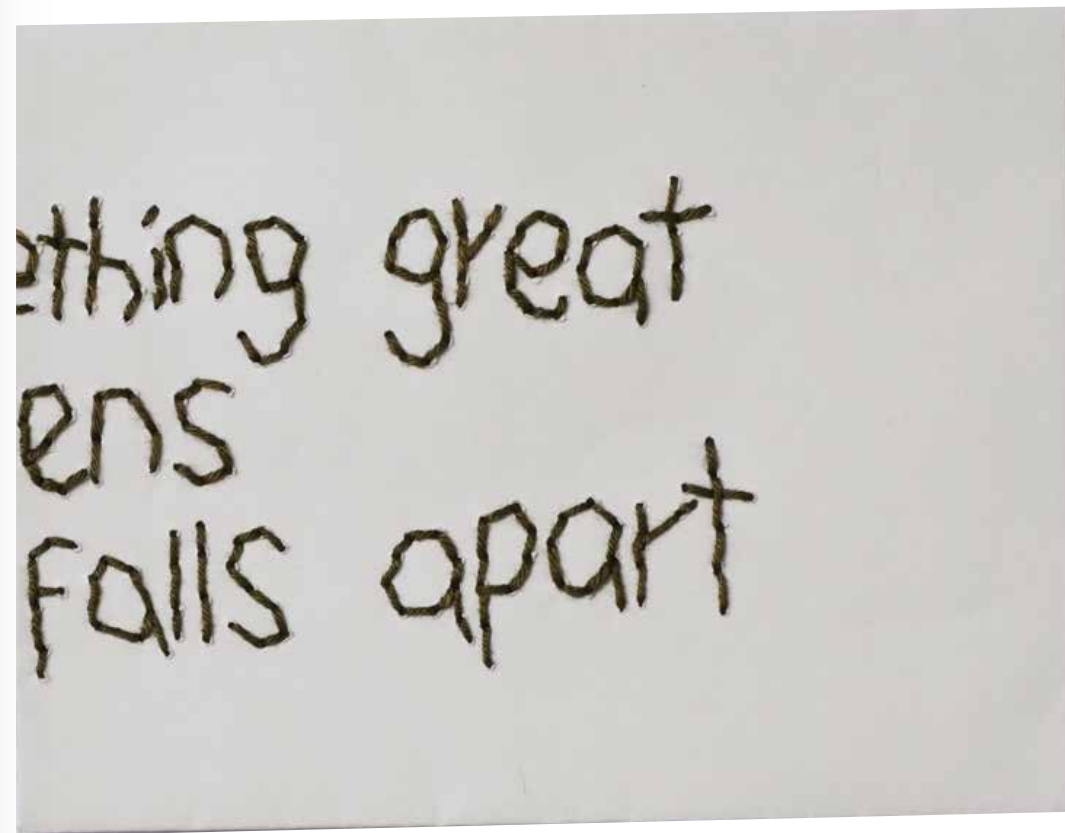 ething great
ens
falls apart